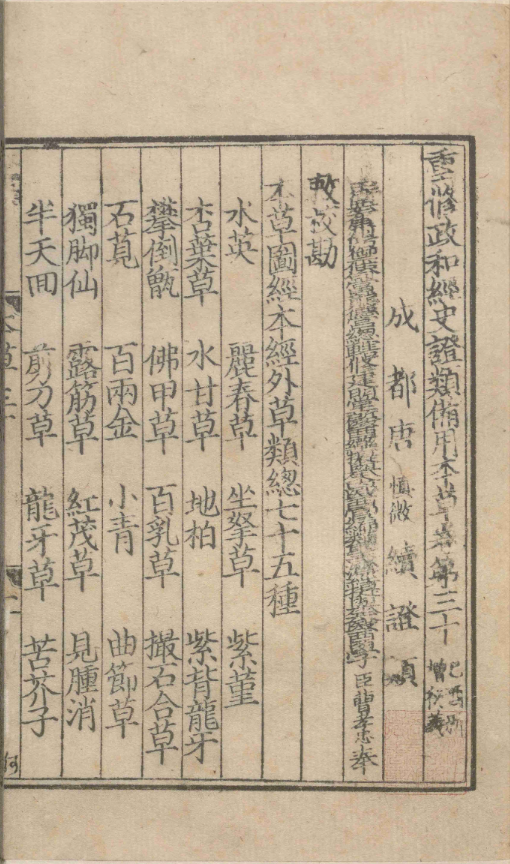 重修政和經史證類備用本草卷第三十 己酉新增衍義
成都唐慎微續證類
醫學臣曹孝忠奉
敕校勘
本草圖經本經外草類總七十五種
水英 麗春草 坐拏草 紫堇
杏葉草 水甘草 地柏 紫背龍牙
攀倒甑 佛甲草 百乳草 撮石合草
石莧 百兩金 小青 曲節草
獨脚仙 露筋草 紅茂草 見腫消
半天回 剪刀草 龍牙草 苦芥子
本草三十
何